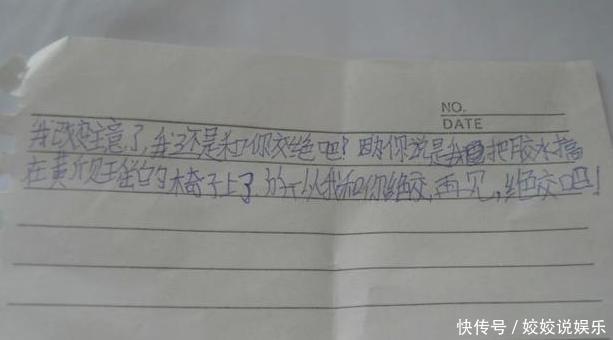 NO.
DATE
我改变主意了,我还是和你交绝吧!因为你说是我把胶水搞
在黄 椅子上了 所以我和你绝交,再见,绝交吧!
快传号/姣姣说娱乐